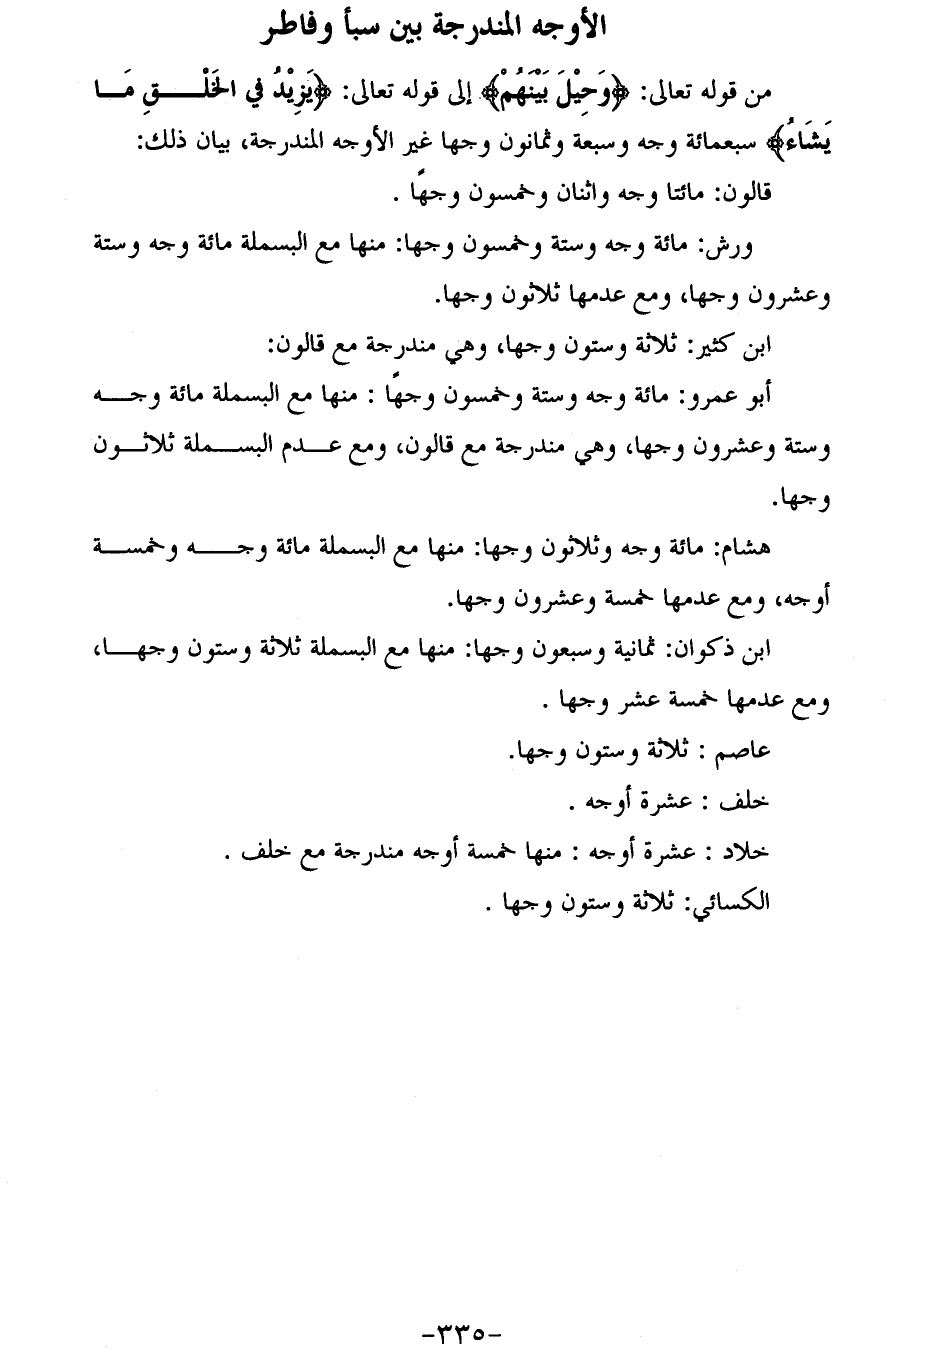 الأوجه المندرجة بين سبأ وفاطر
من قوله تعالى: ﴿وَحِيْلَ بَيْنَهُمْ﴾ إلى قوله تعالى: ﴿يَزِيْدُ في الخَلْـــقِ مَـا
يَشَاءُ﴾ سبعمائة وجه وسبعة وثمانون وجها غير الأوجه المندرجة، بيان ذلك:
قالون: مائتا وجه واثنان وخمسون وجهًا .
ورش: مائة وجه وستة وخمسون وجها: منها مع البسملة مائة وجه وستة
وعشرون وجها، ومع عدمها ثلاثون وجها.
ابن كثير: ثلاثة وستون وجها، وهي مندرجة مع قالون:
أبو عمرو: مائة وجه وستة وخمسون وجهًا : منها مع البسملة مائة وجـــه
وستة وعشرون وجها، وهي مندرجة مع قالون، ومع عـــدم البســـملة ثلاثـــون
وجها.
هشام: مائة وجه وثلاثون وجها: منها مع البسملة مائة وجـــــه وخمســـة
أوجه، ومع عدمها خمسة وعشرون وجها.
ابن ذكوان: ثمانية وسبعون وجها: منها مع البسملة ثلاثة وستون وجهـــا،
ومع عدمها خمسة عشر وجها .
عاصم : ثلاثة وستون وجها.
خلف : عشرة أوجه .
خلاد : عشرة أوجه : منها خمسة أوجه مندرجة مع خلف .
الكسائي: ثلاثة وستون وجها .
-٣٣٥-